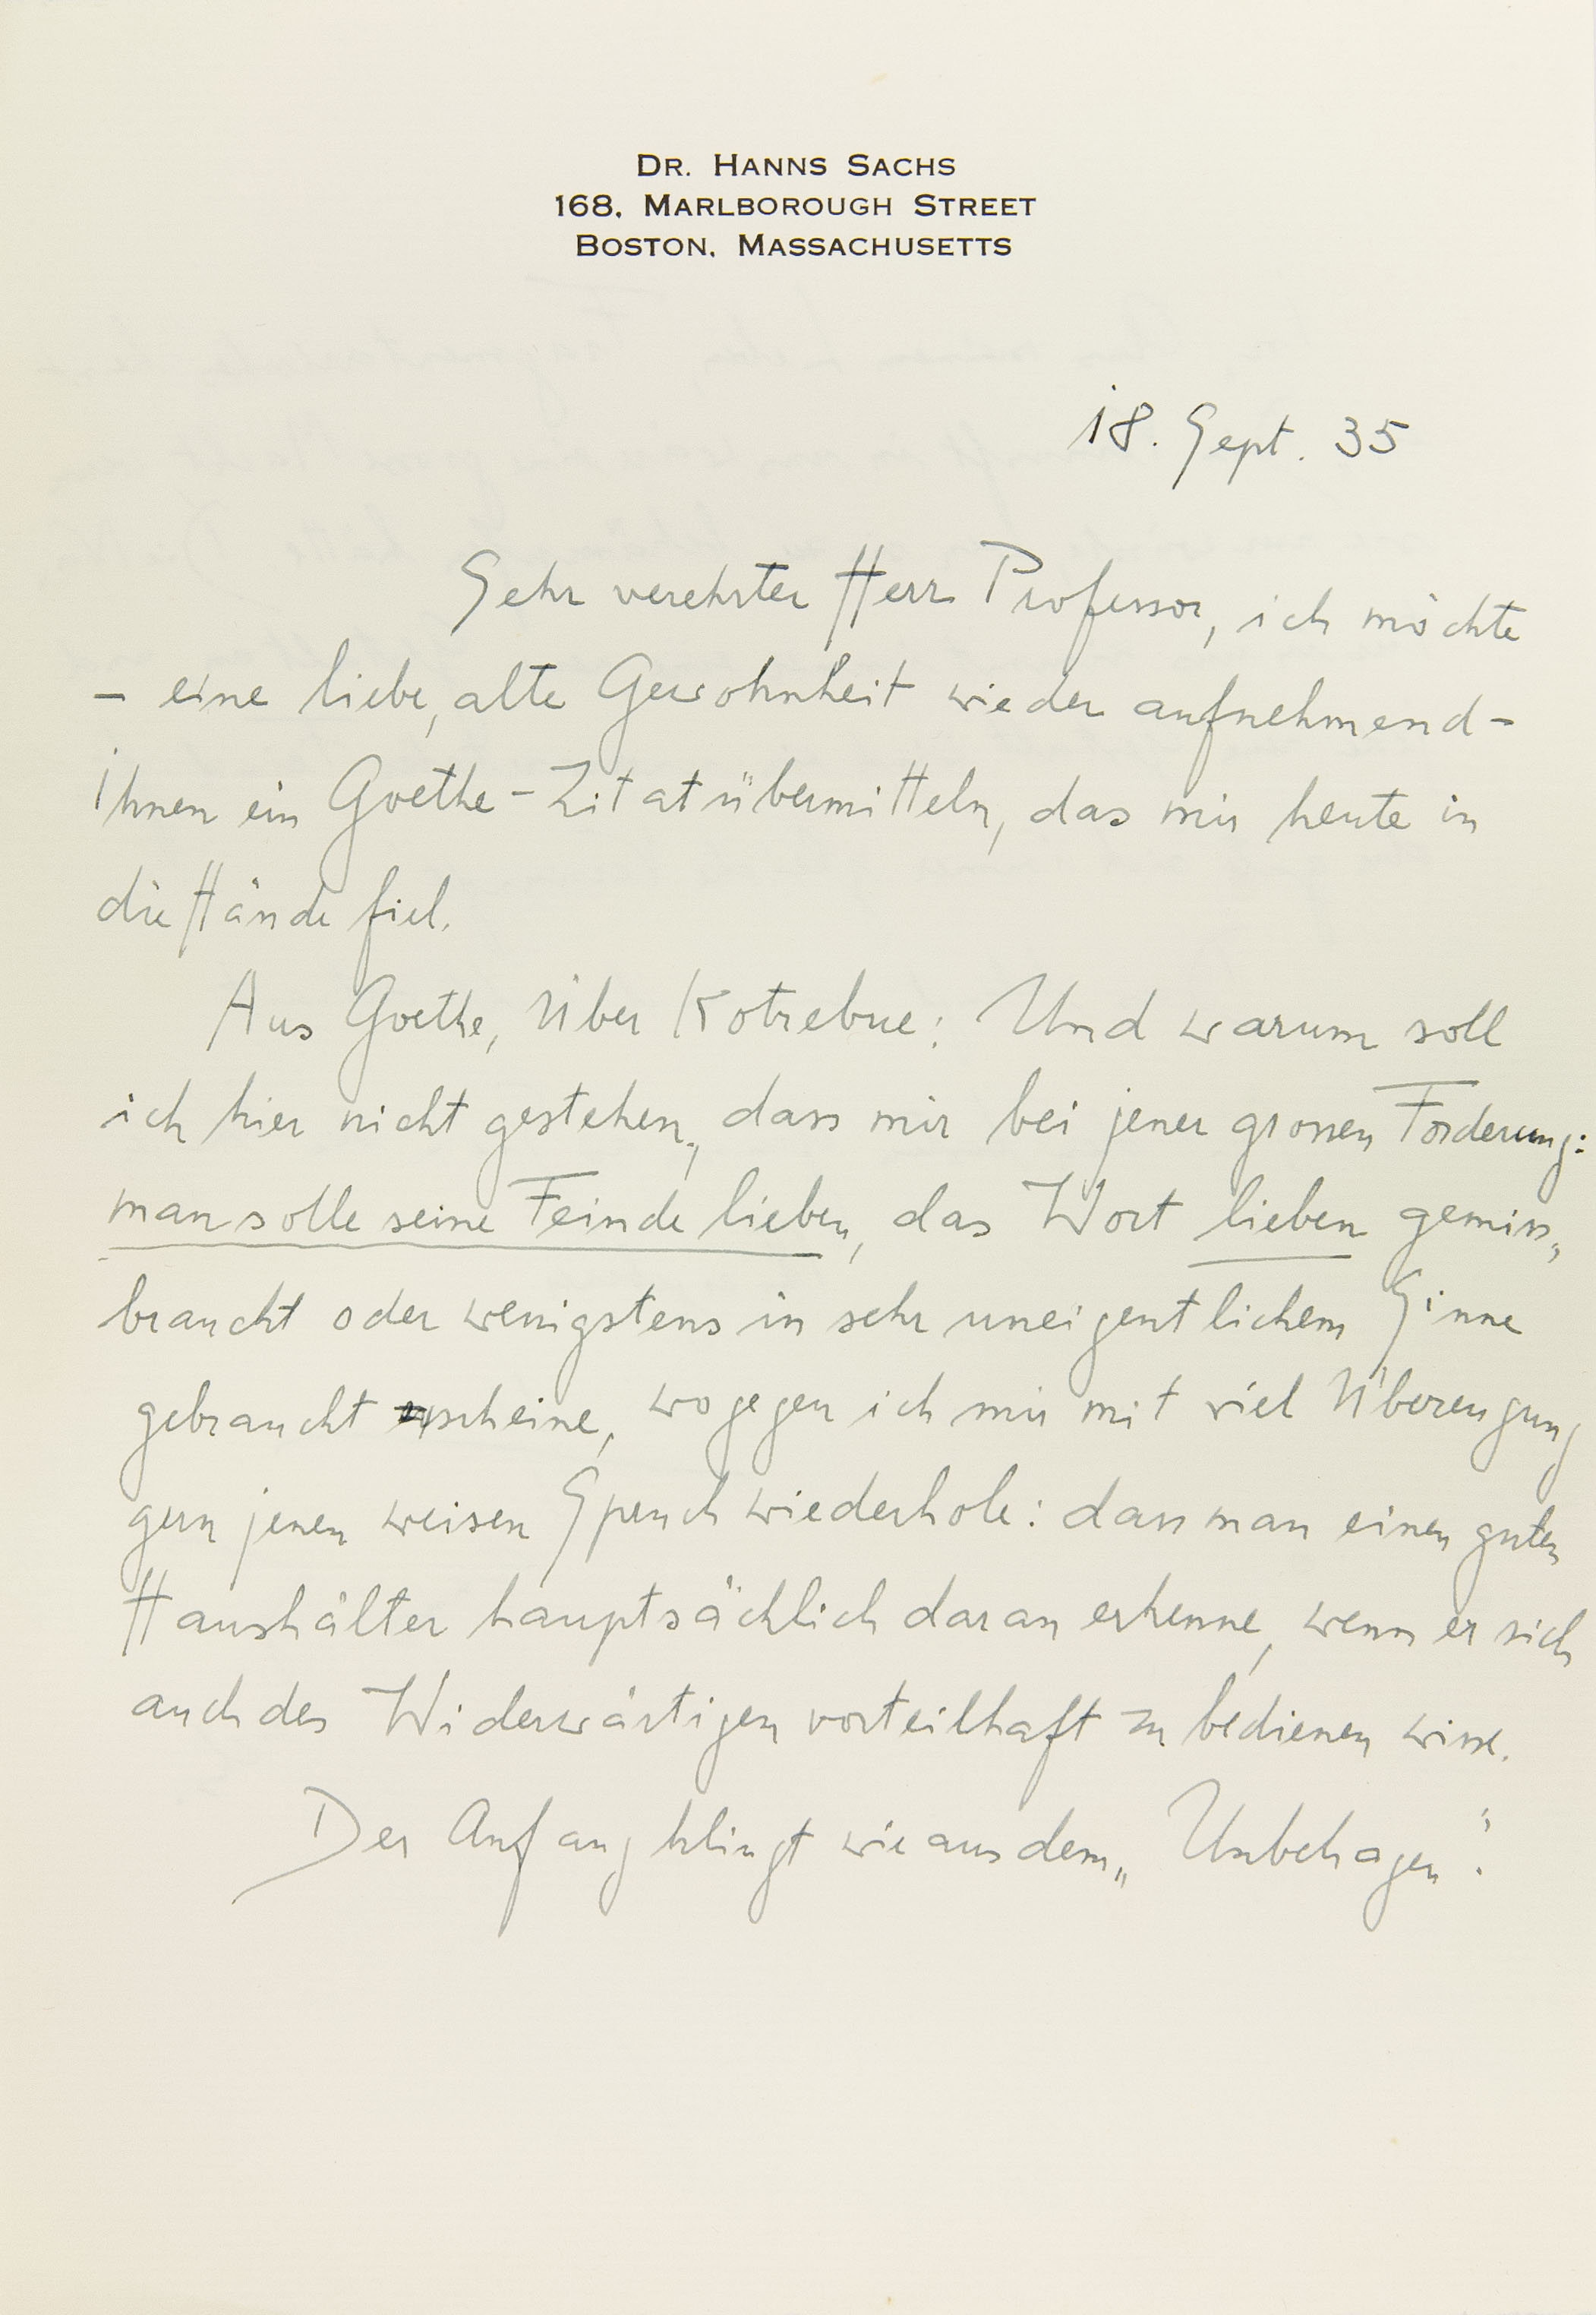 DR. HANNS SACHS
168, MARLBOROUGH STREET
BOSTON, MASSACHUSETTS
18. Sept. 35
Sehr verehrter Herr Professor, ich möchte
– eine liebe, alte Gewohnheit wieder aufnehmend –
Ihnen ein Goethe-Zitat übermitteln, das mir heute in
die Hände fiel.
Aus Goethe, Über Kotzebue: Und warum soll
ich hier nicht gestehen, dass mir bei jener grossen Forderung:
man solle seine Feinde lieben, das Wort lieben gemiss„
braucht oder wenigstens in sehr uneigentlichem Sinne
gebraucht scheine, wogegen ich mir mit viel Überzeugung
gern jenen weisen Spruch wiederhole: dass man einen guten
Haushälter hauptsächlich daran erkenne, wenn er sich
auch des Widerwärtigen vorteilhaft zu bedienen wisse.
Der Anfang klingt wie aus dem „Unbehagen".